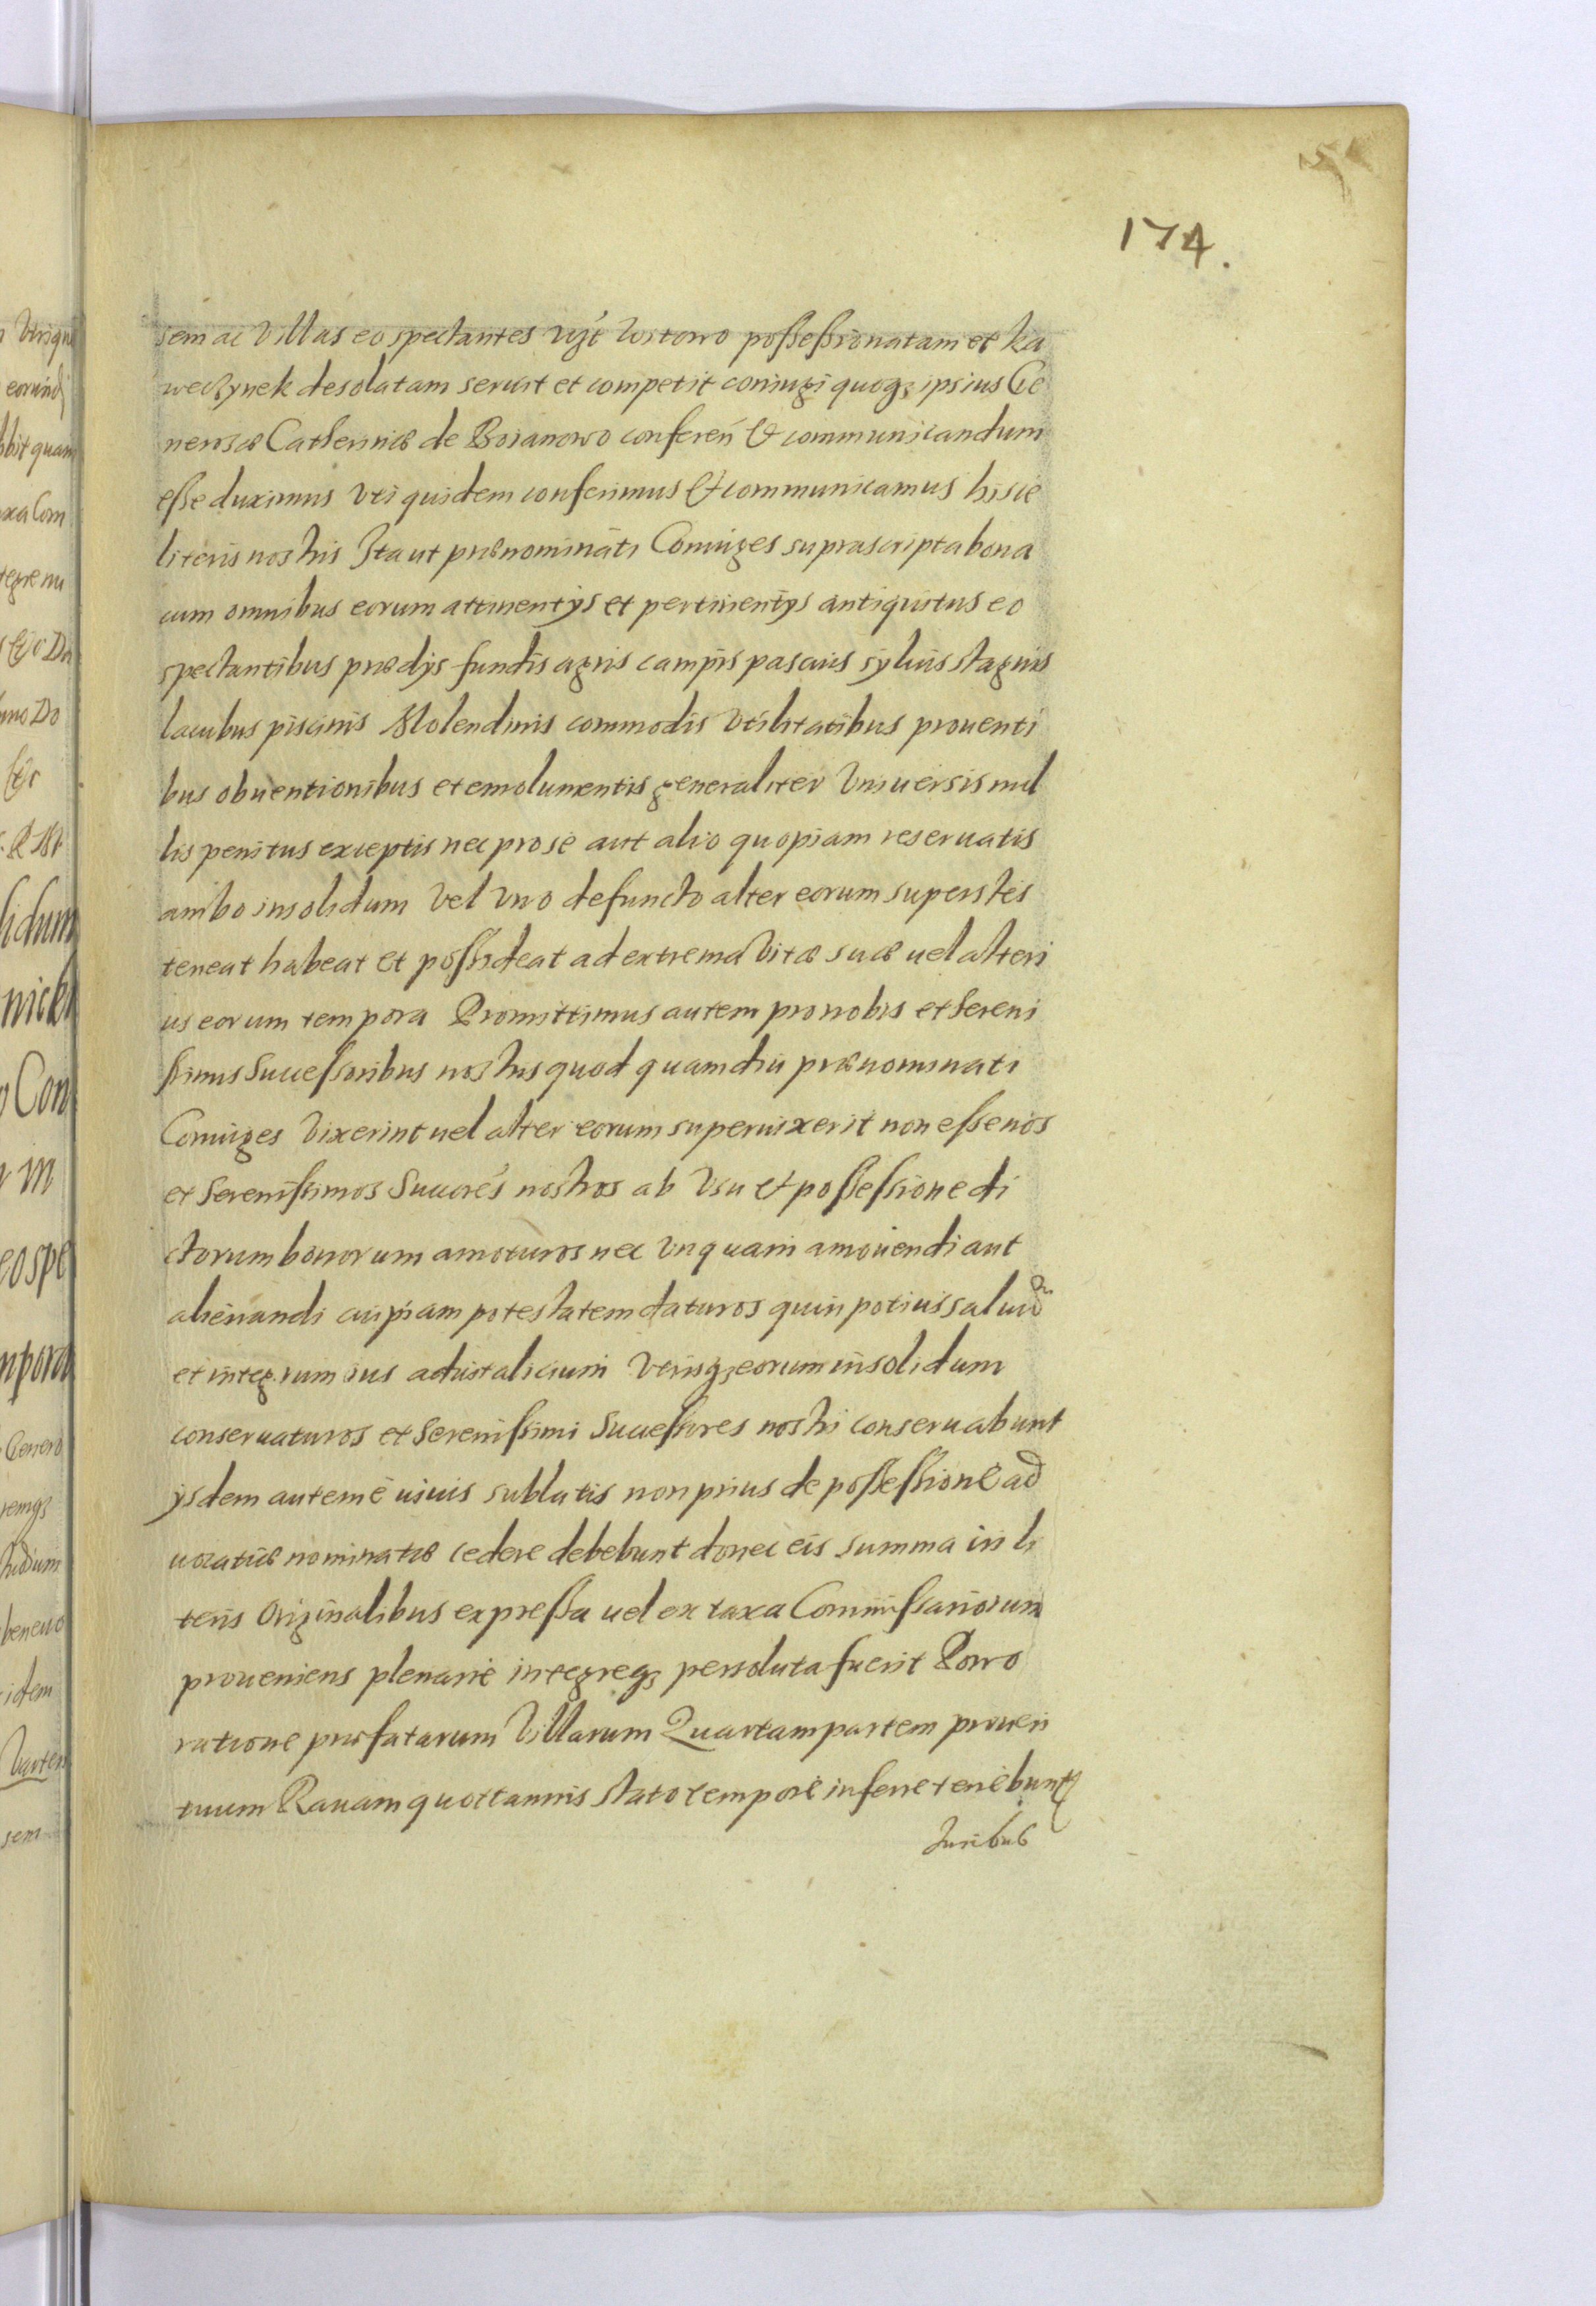 174.
sem ac Villas eo spectantes vizt Witowo possessionatam et Ka
weczynek desolatam seruit et competit coniugi quoqз ipsius Ge
nerosæ Catherinæ de Boianowo conferen̄ & communicandum
esse duximus Vti quidem conferimus & communicamus hisce
literis nostris Ita ut prænominati Coniuges suprascripta bona
cum omnibus eorum attinentÿs et pertinentÿs antiquitus eo
spectantibus prædÿs fundis agris campis pascuis syluis stagnis
lacubus piscinis Molendinis commodis Vtilitatibus prouenti
bus obuentionibus et emolumentis generaliter Vniuersis nul
lis penitus exceptis nec pro se aut alio quopiam reseruatis
ambo insolidum Vel Vno defuncto alter eorum superstes
teneat habeat et possideat ad extrema Vitæ suæ uel alteri
us eorum tempora Promittimus autem pro nobis et Sereni
ssimis Successoribus nostris quod quamdiu prænominati
Coniuges Vixerint uel alter eorum superuixerit non esse nos
et Serenissimos Succres nostros ab Vsu & possessione di
ctorum bonorum amoturos nec Vnquam amouendi aut
alienandi cuipiam potestatem daturos quin potius saluū
et integrum ius aduitalicium Vtriusqз eorum insolidum
conseruaturos et Serenissimi Successores nostri conseruabunt
ÿsdem autem è uiuis sublatis non prius de possessione ad
uocatiæ nominatæ cedere debebunt donec eis summa in li
teris Originalibus expressa uel ex taxa Commissariorum
proueniens plenarie integreqз persoluta fuerit Porro
ratione præfatarum Villarum Quartam partem prouen
tuum Rauam quottannis stato tempore inferre tenebunt
Iuribus